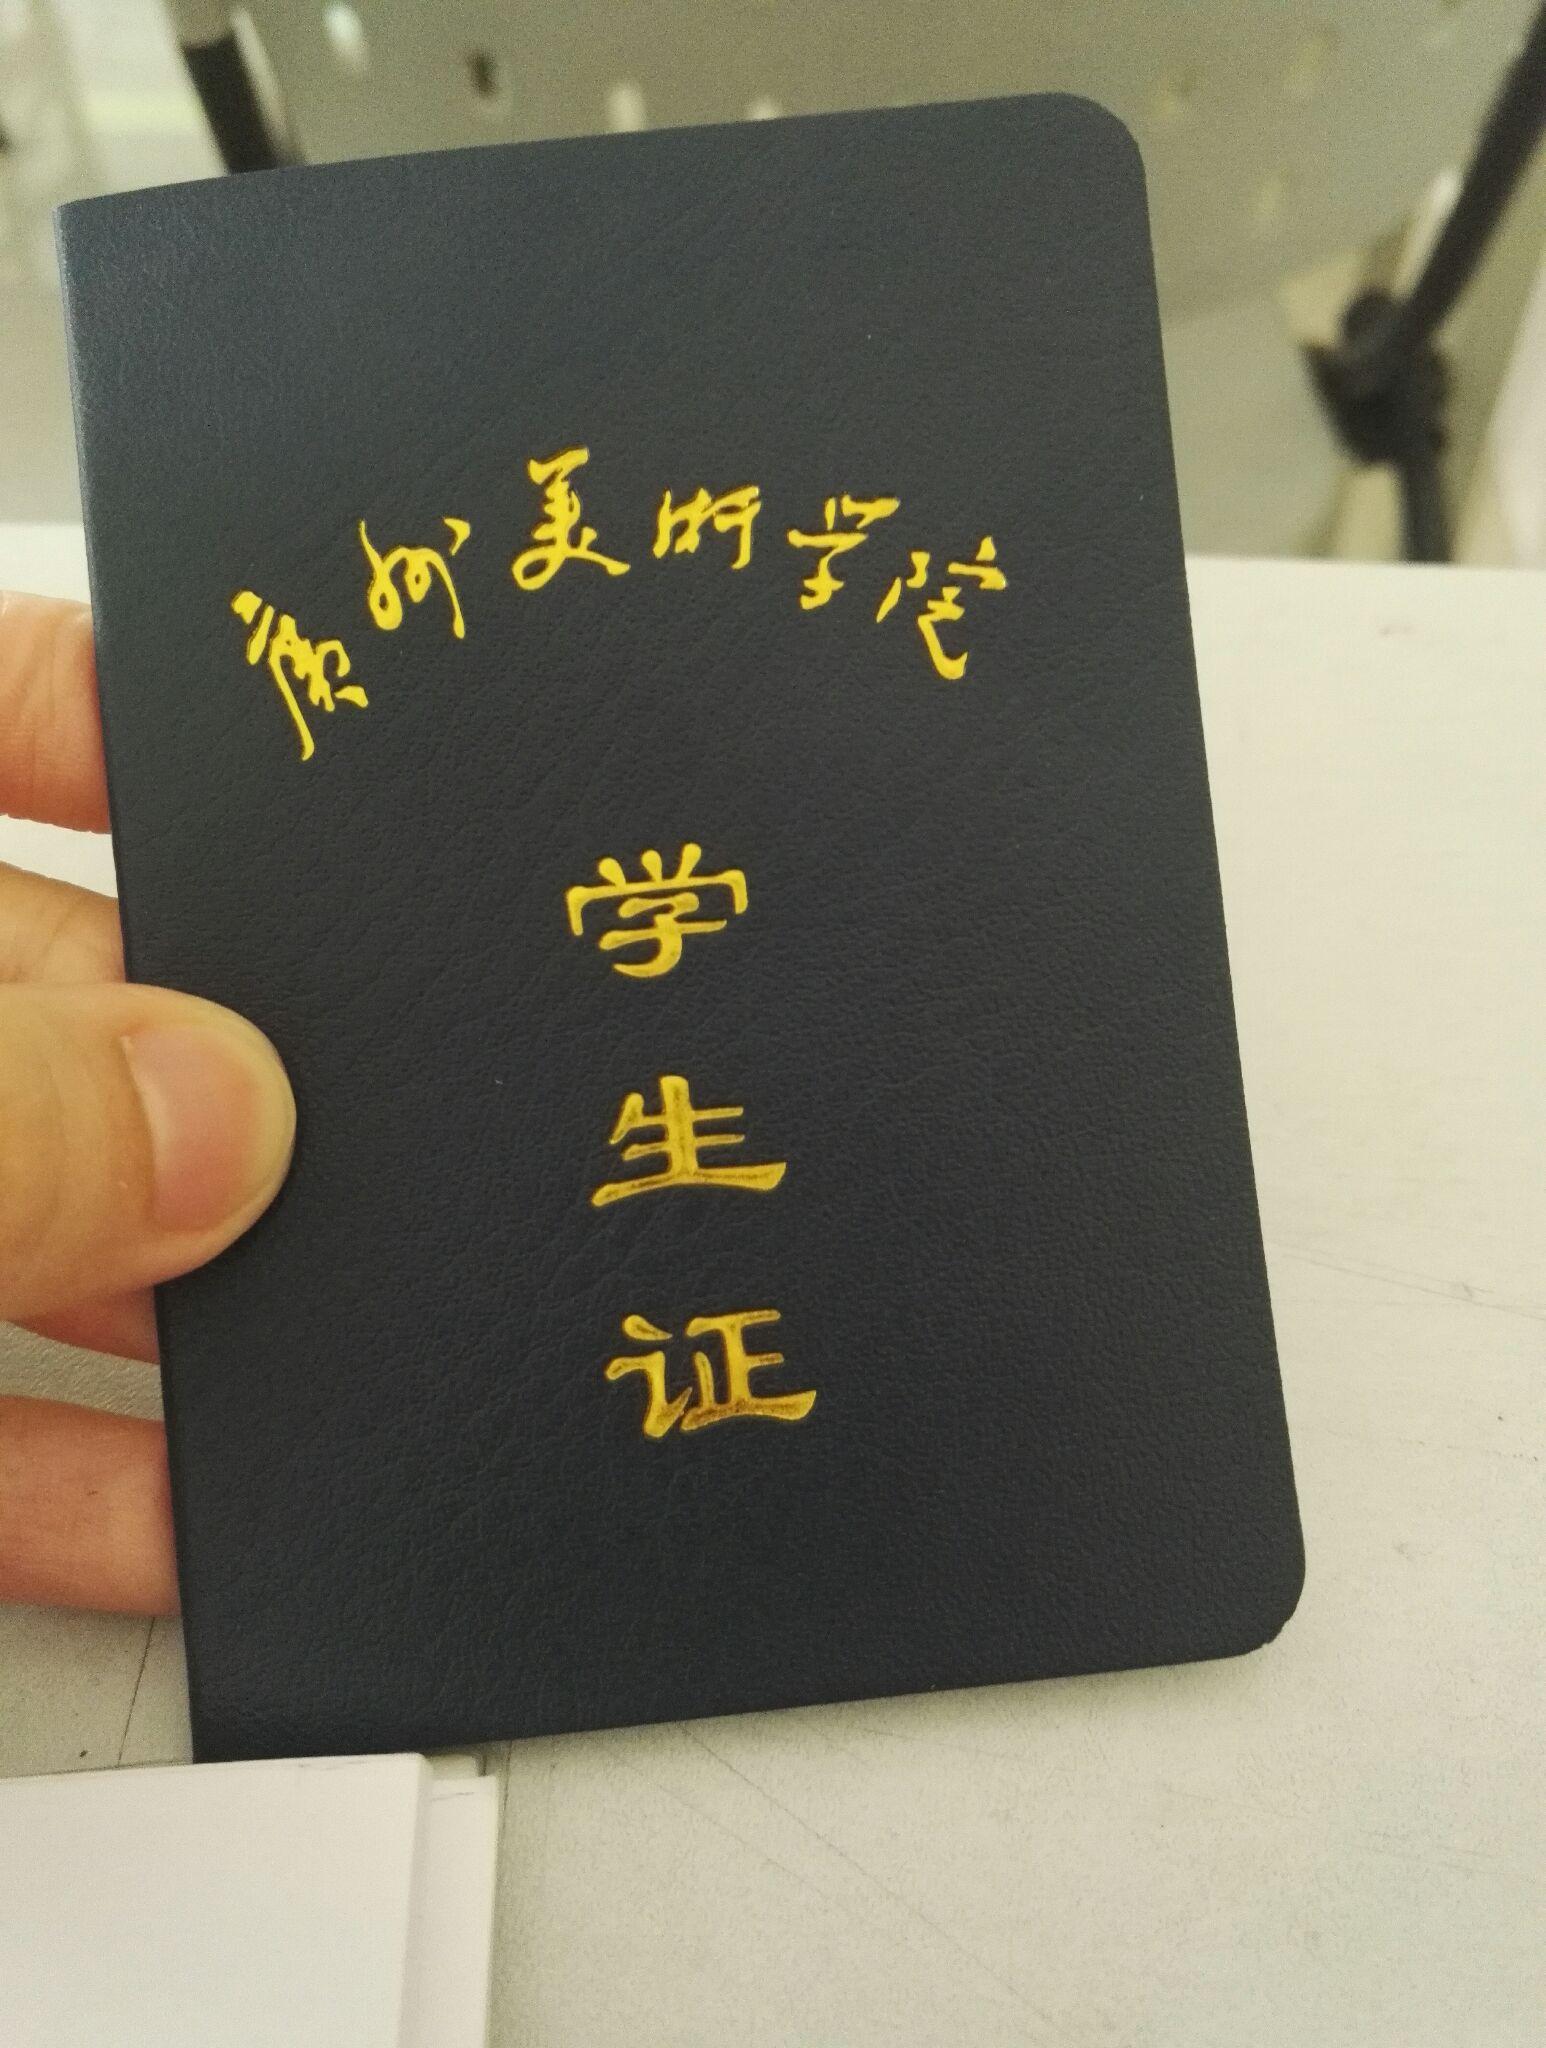 廣州美术学院
学
生
证